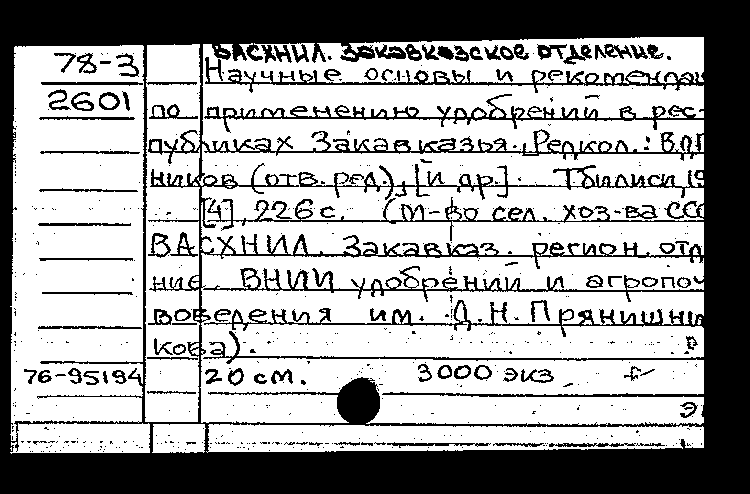 ВАСХНИЛ. Закавказское отделение.
78-3 Научные основы и рекомендац
2601 по применению удобрений в рес-
публиках Закавказья. Редкол.: В.
ников (отв. ред.), [и др.]. Тбилиси, 19
[4], 226 с. (М-во сел. хоз-ва ССС
ВАСХНИЛ. Закавказ. регион. отд
ние. ВНИИ удобрений и агропоч
воведения им. Д.Н. Прянишни
кова).
76-95194 20 см. 3000 экз